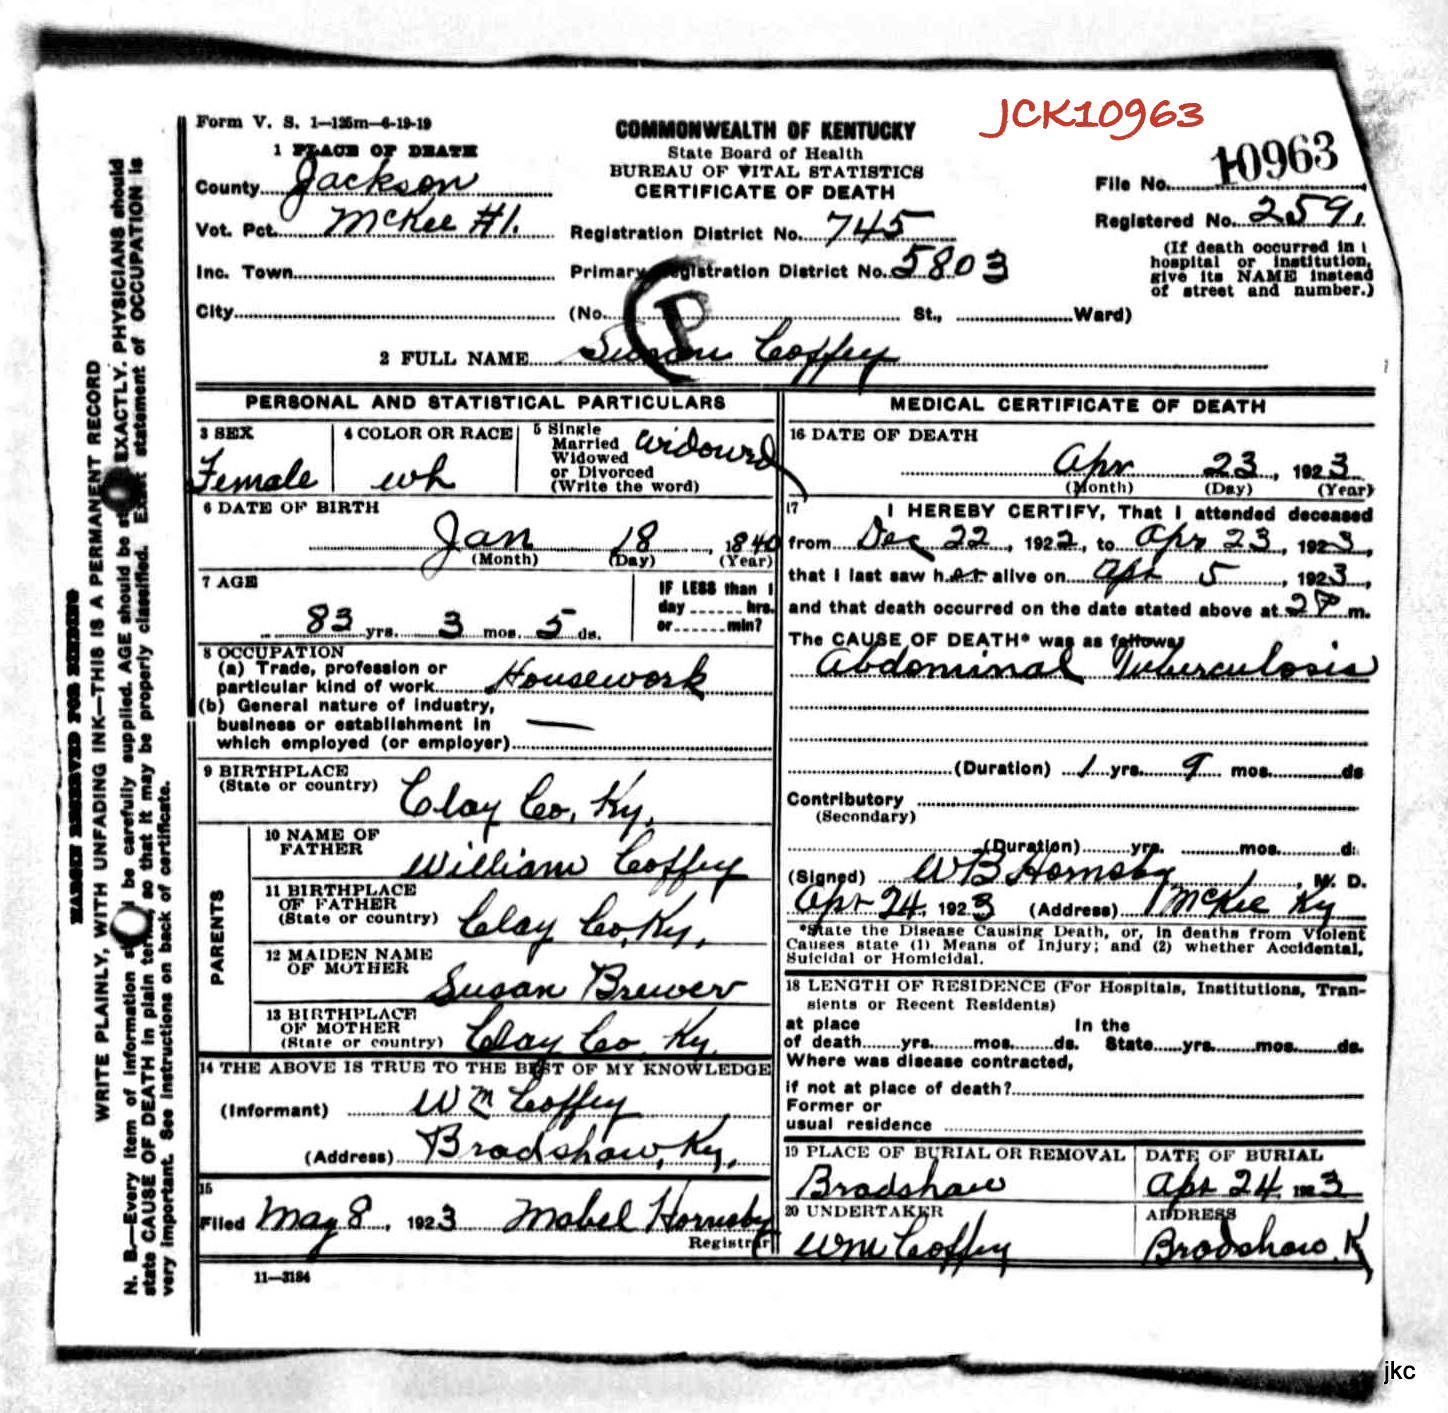 JCK10963
Form V. S. 1—125m—6-19-19
1 PLACE OF DEATH
County Jackson
Vot. Pct. McKee #1.
Inc. Town
City
COMMONWEALTH OF KENTUCKY
State Board of Health
BUREAU OF VITAL STATISTICS
CERTIFICATE OF DEATH
Registration District No. 745
Primary Registration District No. 5803
(No. St., Ward)
P
File No. 10963
Registered No. 259
(If death occurred in
hospital or institution,
give its NAME instead
of street and number.)
2 FULL NAME Susan Coffey
PERSONAL AND STATISTICAL PARTICULARS
3 SEX
Female
4 COLOR OR RACE
wh
5 Single
Married
Widowed
or Divorced
(Write the word)
widowed
6 DATE OF BIRTH
Jan 18, 1840
(Month) (Day) (Year)
7 AGE
83 yrs. 3 mos. 5 ds.
IF LESS than 1
day hrs.
or min?
8 OCCUPATION
(a) Trade, profession or
particular kind of work Housework
(b) General nature of industry,
business or establishment in
which employed (or employer) —
9 BIRTHPLACE
(State or country) Clay Co, Ky.
PARENTS
10 NAME OF
FATHER
William Coffey
11 BIRTHPLACE
OF FATHER
(State or country) Clay Co, Ky.
12 MAIDEN NAME
OF MOTHER
Susan Brewer
13 BIRTHPLACE
OF MOTHER
(State or country) Clay Co Ky.
14 THE ABOVE IS TRUE TO THE BEST OF MY KNOWLEDGE
(Informant) Wm Coffey
(Address) Bradshaw, Ky.
15
Filed May 8, 1923 Mabel Hornsby
Registrar
11—3184
MEDICAL CERTIFICATE OF DEATH
16 DATE OF DEATH
Apr 23, 1923
(Month) (Day) (Year)
17 I HEREBY CERTIFY, That I attended deceased
from Dec 22, 1922, to Apr 23, 1923,
that I last saw her alive on Apr 5, 1923,
and that death occurred on the date stated above at 2P m.
The CAUSE OF DEATH* was as follows
Abdominal Tuberculosis
(Duration) 1 yrs. 9 mos. ds
Contributory
(Secondary)
(Duration) yrs. mos. d
(Signed) WB Hornsby, M. D.
Apr 24, 1923 (Address) McKee Ky
*State the Disease Causing Death, or, in deaths from Violent
Causes state (1) Means of Injury; and (2) whether Accidental,
Suicidal or Homicidal.
18 LENGTH OF RESIDENCE (For Hospitals, Institutions, Tran-
sients or Recent Residents)
at place In the
of death yrs. mos. ds. State yrs. mos. ds.
Where was disease contracted,
if not at place of death?
Former or
usual residence
19 PLACE OF BURIAL OR REMOVAL
Bradshaw
DATE OF BURIAL
Apr 24, 1923
20 UNDERTAKER
Wm Coffey
ADDRESS
Bradshaw, K
MARGIN RESERVED FOR BINDING
WRITE PLAINLY, WITH UNFADING INK—THIS IS A PERMANENT RECORD
N. B.—Every item of information be carefully supplied. AGE should be EXACTLY. PHYSICIANS should
state CAUSE OF DEATH in plain terms, so that it may be properly classified. Exact statement of OCCUPATION is
very important. See instructions on back of certificate.
jkc